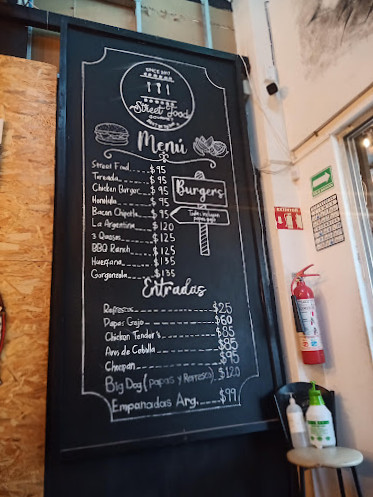 SINCE 2017
Street food
GOURMET
Menú
Street Food $95
Tareada $95
Chicken Burger $95
Hawaiida $95
Bacon Chipotle $95
La Argentina $120
3 Quesos $125
BBQ Ranch $125
Huerfana $135
Gorgonzola $135
Burgers
Todas incluyen
papas gajo
Entradas
Refresco $25
Papas Gajo $60
Chicken Tender's $85
Aros de Cebolla $85
Choripan $95
Big Dog (Papas y Refresco) $120
Empanadas Arg. $99
EXTINTOR